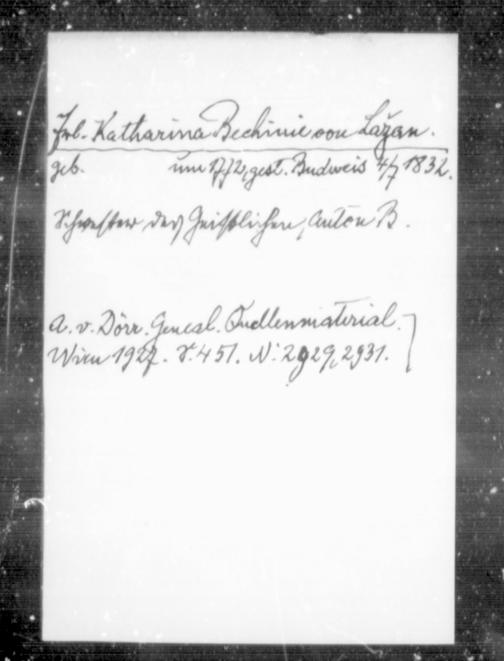 Frl. Katharina Bechinie von Lažan.
geb. um 1772, gest. Budweis 4/7 1832.
Schwester des Geistlichen, Anton B.
A. v. Dörr. Geneal. Quellenmaterial.
Wien 1927. S. 451. N: 2929, 2931.